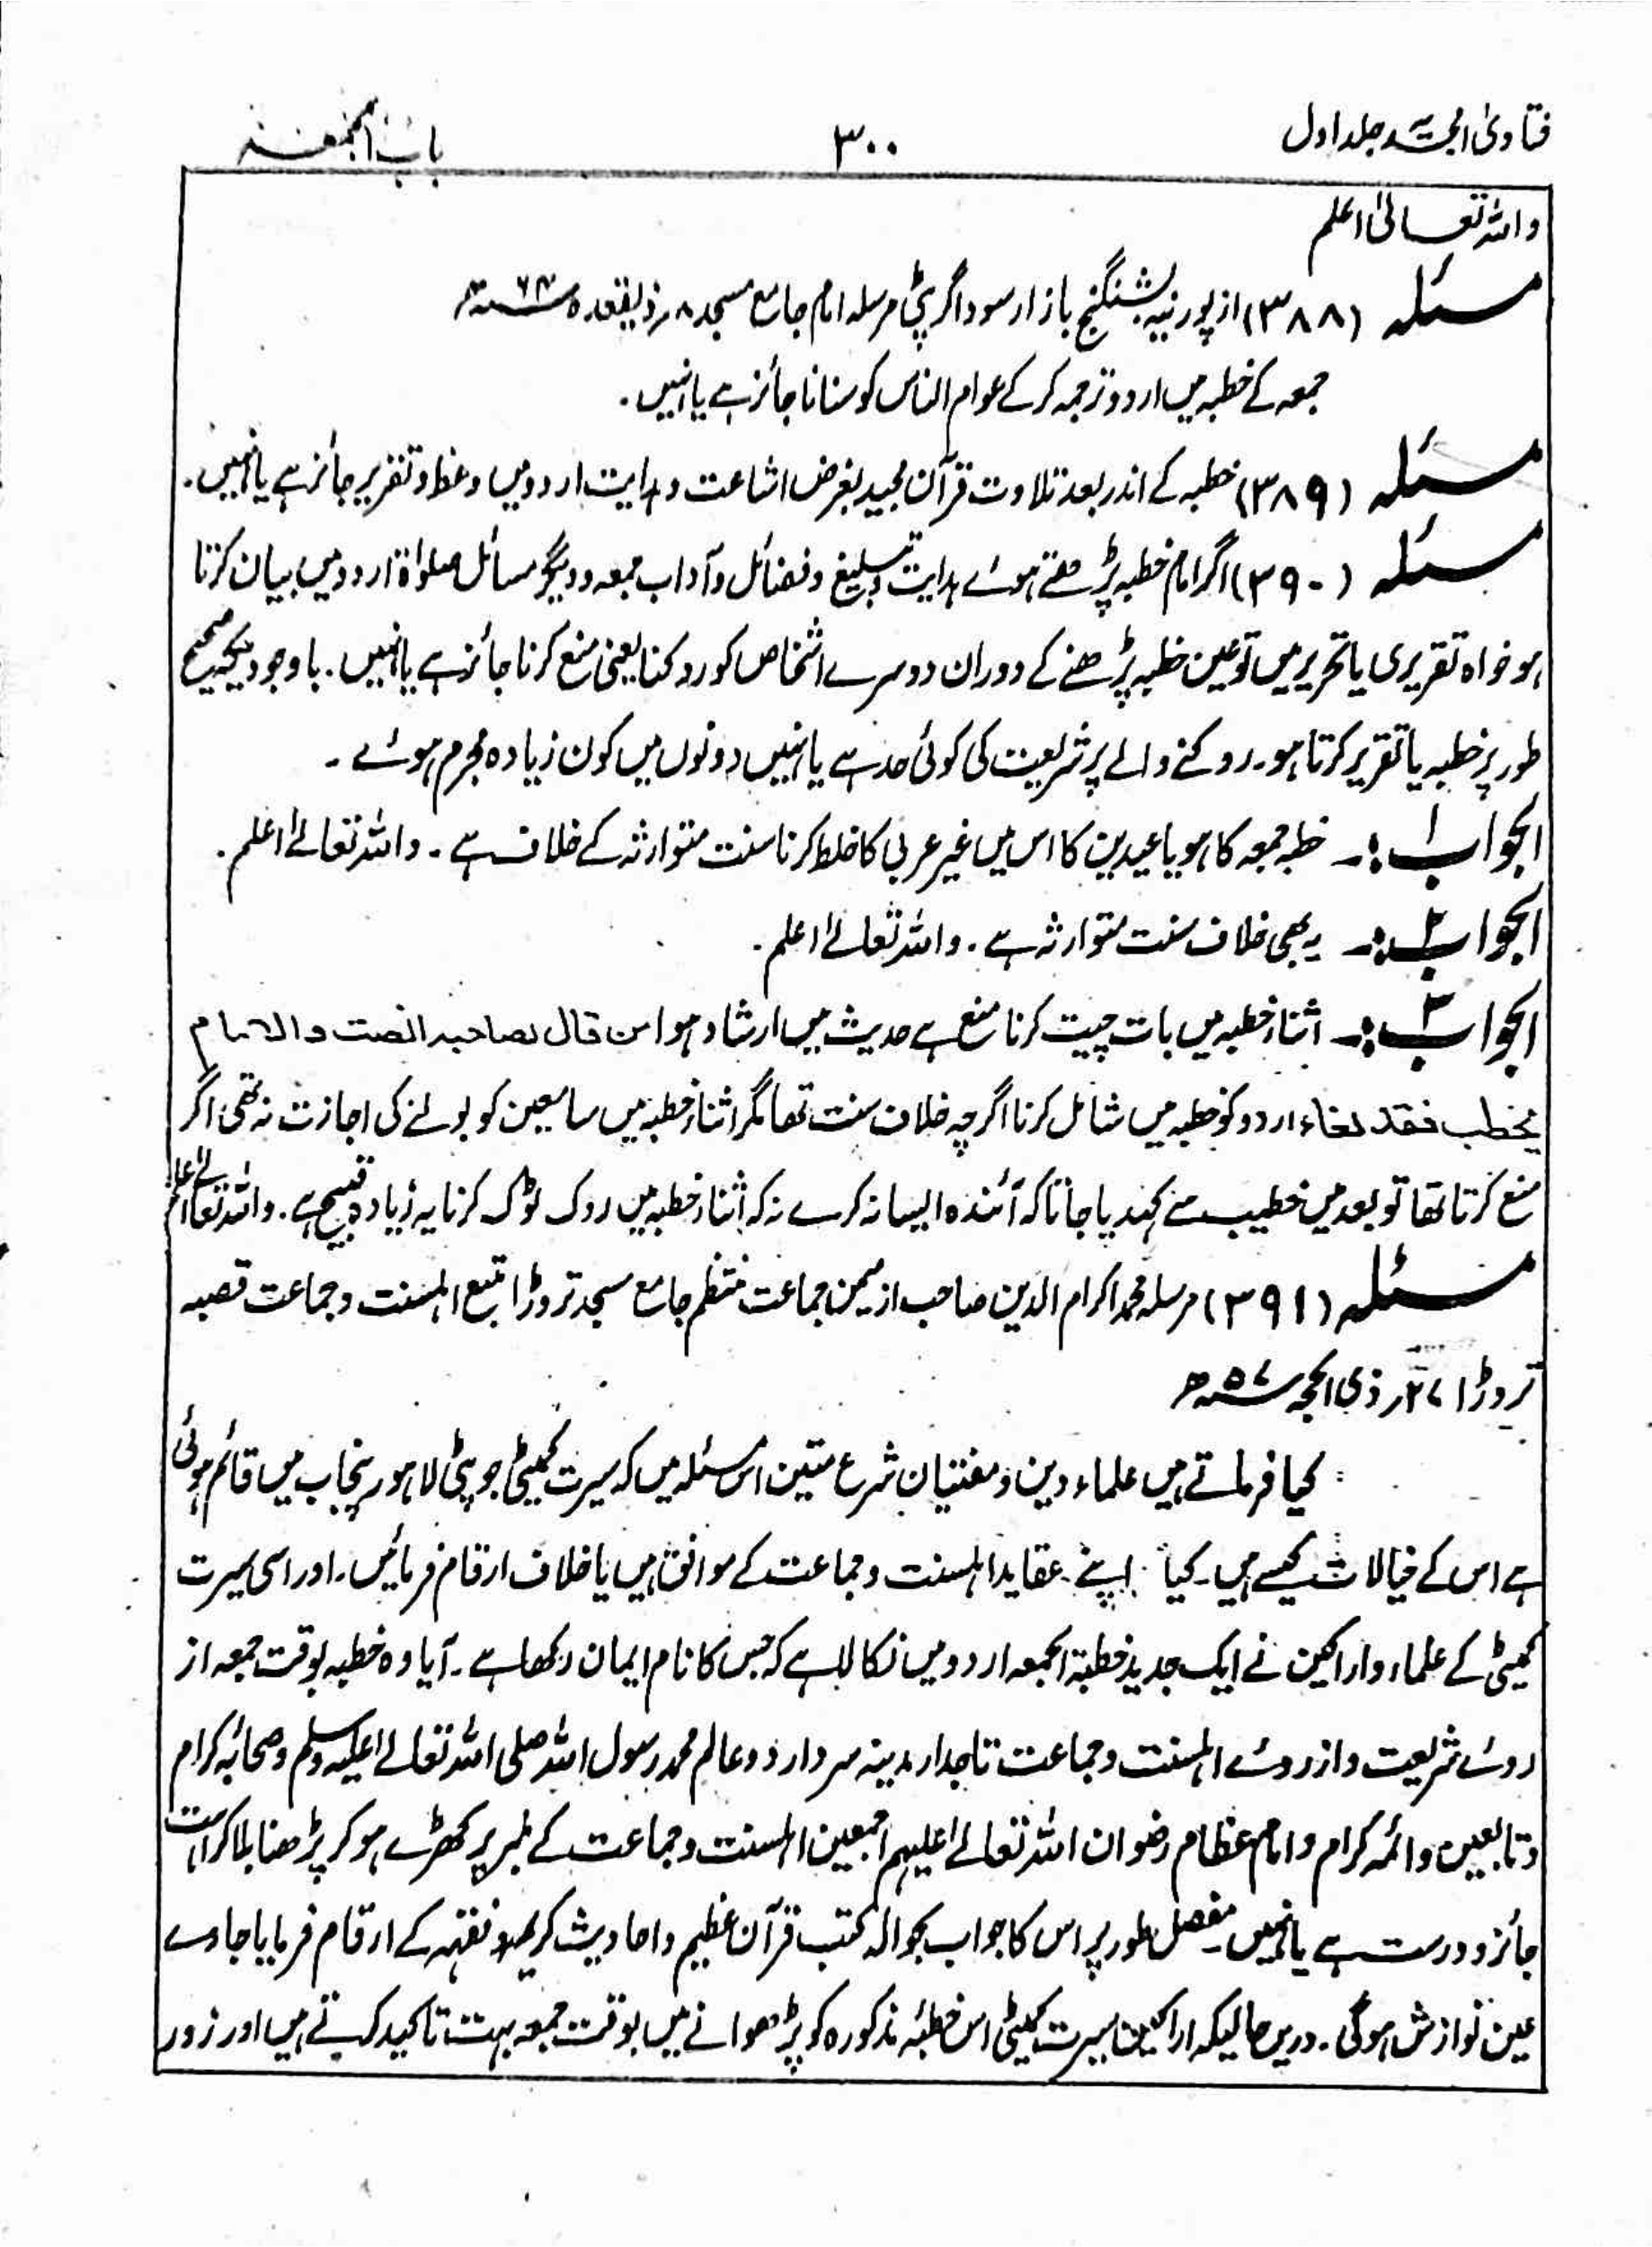 فتاویٰ امجدیہ جلد اول
۳۰۰
باب الجمعہ
واللہ تعالیٰ اعلم
مسئلہ (۳۸۸) از پورنیہ بشنگنج بازار سوداگر پٹی مرسلہ امام جامع مسجد ۸ر ذیقعدہ ۶۴ھ
جمعہ کے خطبہ میں اردو ترجمہ کرکے عوام الناس کو سنانا جائز ہے یا نہیں۔
مسئلہ (۳۸۹) خطبہ کے اندر بعد تلاوت قرآن مجید بغرض اشاعت و ہدایت اردو میں وعظ و تقریر جائز ہے یا نہیں۔
مسئلہ (۳۹۰) اگر امام خطبہ پڑھتے ہوئے ہدایت و تبلیغ و فضائل و آداب جمعہ و دیگر مسائل صلوٰۃ اردو میں بیان کرتا
ہو خواہ تقریری یا تحریر میں تو عین خطبہ پڑھنے کے دوران دوسرے اشخاص کو روکنا یعنی منع کرنا جائز ہے یا نہیں۔ باوجودیکہ صحیح
طور پر خطبہ یا تقریر کرتا ہو۔ روکنے والے پر شریعت کی کوئی حد ہے یا نہیں دونوں میں کون زیادہ مجرم ہوئے۔
الجواب ۱:۔ خطبہ جمعہ کا ہو یا عیدین کا اس میں غیر عربی کا خلط کرنا سنت متوارثہ کے خلاف ہے۔ واللہ تعالےٰ اعلم۔
الجواب ۲:۔ یہ بھی خلاف سنت متوارثہ ہے۔ واللہ تعالےٰ اعلم۔
الجواب ۳:۔ اثناء خطبہ میں بات چیت کرنا منع ہے حدیث میں ارشاد ہوا من قال لصاحبہ انصت والامام
یخطب فقد لغا، اردو کو خطبہ میں شامل کرنا اگرچہ خلاف سنت تھا مگر اثناء خطبہ میں سامعین کو بولنے کی اجازت نہ تھی اگر
منع کرتا تھا تو بعد میں خطیب سے کہدیا جاتا کہ آئندہ ایسا نہ کرے نہ کہ اثناء خطبہ میں روک ٹوک کرنا یہ زیادہ قبیح ہے۔ واللہ تعالےٰ اعلم
مسئلہ (۳۹۱) مرسلہ محمد اکرام الدین صاحب از میمن جماعت منتظم جامع مسجد تروڑا متبع اہلسنت و جماعت قصبہ
تروڑا ۲۷ر ذی الحجہ ۵۷ھ
کیا فرماتے ہیں علماء دین و مفتیان شرع متین اس مسئلہ میں کہ سیرت کمیٹی جو پٹی لاہور پنجاب میں قائم ہوئی
ہے اس کے خیالات کیسے ہیں۔ کیا اپنے عقاید اہلسنت و جماعت کے موافق ہیں یا خلاف ارقام فرمائیں۔ اور اسی سیرت
کمیٹی کے علماء و اراکین نے ایک جدید خطبۃ الجمعہ اردو میں نکالا ہے کہ جس کا نام ایمان رکھا ہے۔ آیا وہ خطبہ بوقت جمعہ از
روئے شریعت و از روئے اہلسنت و جماعت تاجدار مدینہ سردار دو عالم محمد رسول اللہ صلی اللہ تعالےٰ علیہ وسلم و صحابۂ کرام
و تابعین و ائمہ کرام و امام عظام رضوان اللہ تعالےٰ علیہم اجمعین اہلسنت و جماعت کے ممبر پر کھڑے ہو کر پڑھنا بلا کراہت
جائز و درست ہے یا نہیں۔ مفصل طور پر اس کا جواب بحوالہ کتب قرآن عظیم و احادیث کریمہ و فقہہ کے ارقام فرمایا جاوے
عین نوازش ہوگی۔ دریں حالیکہ اراکین سیرت کمیٹی اس خطبۂ مذکورہ کو پڑھوانے میں بوقت جمعہ بہت تاکید کرتے ہیں اور زور